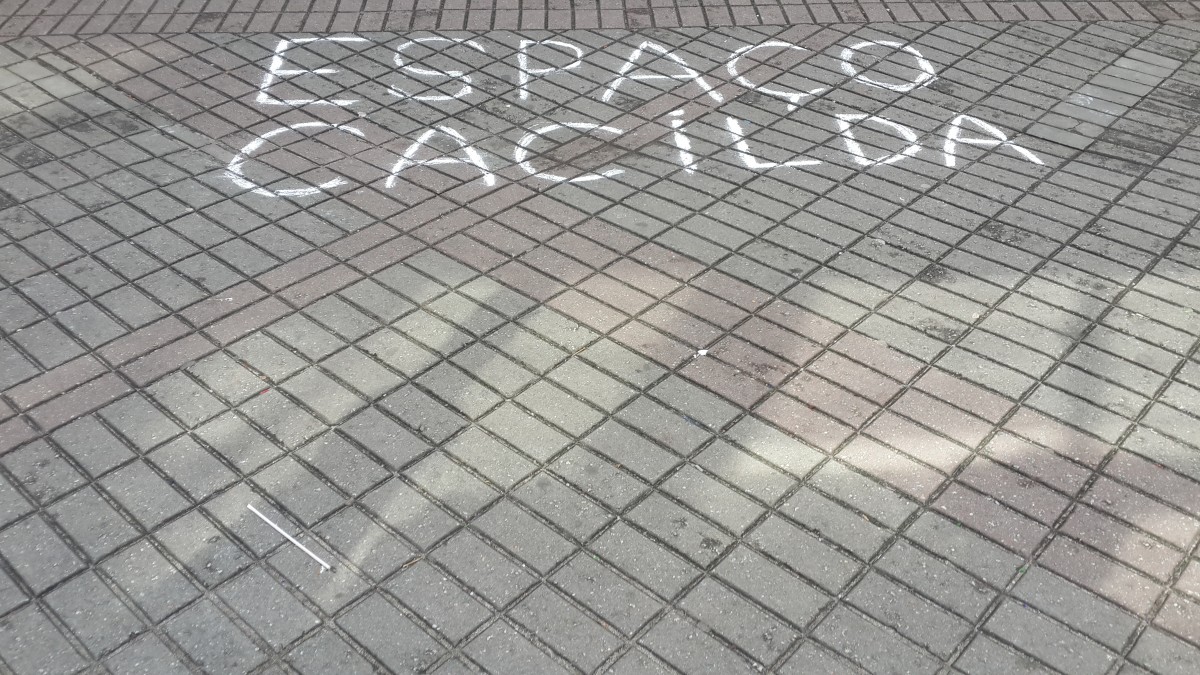 ESPAÇO
CACiLDA